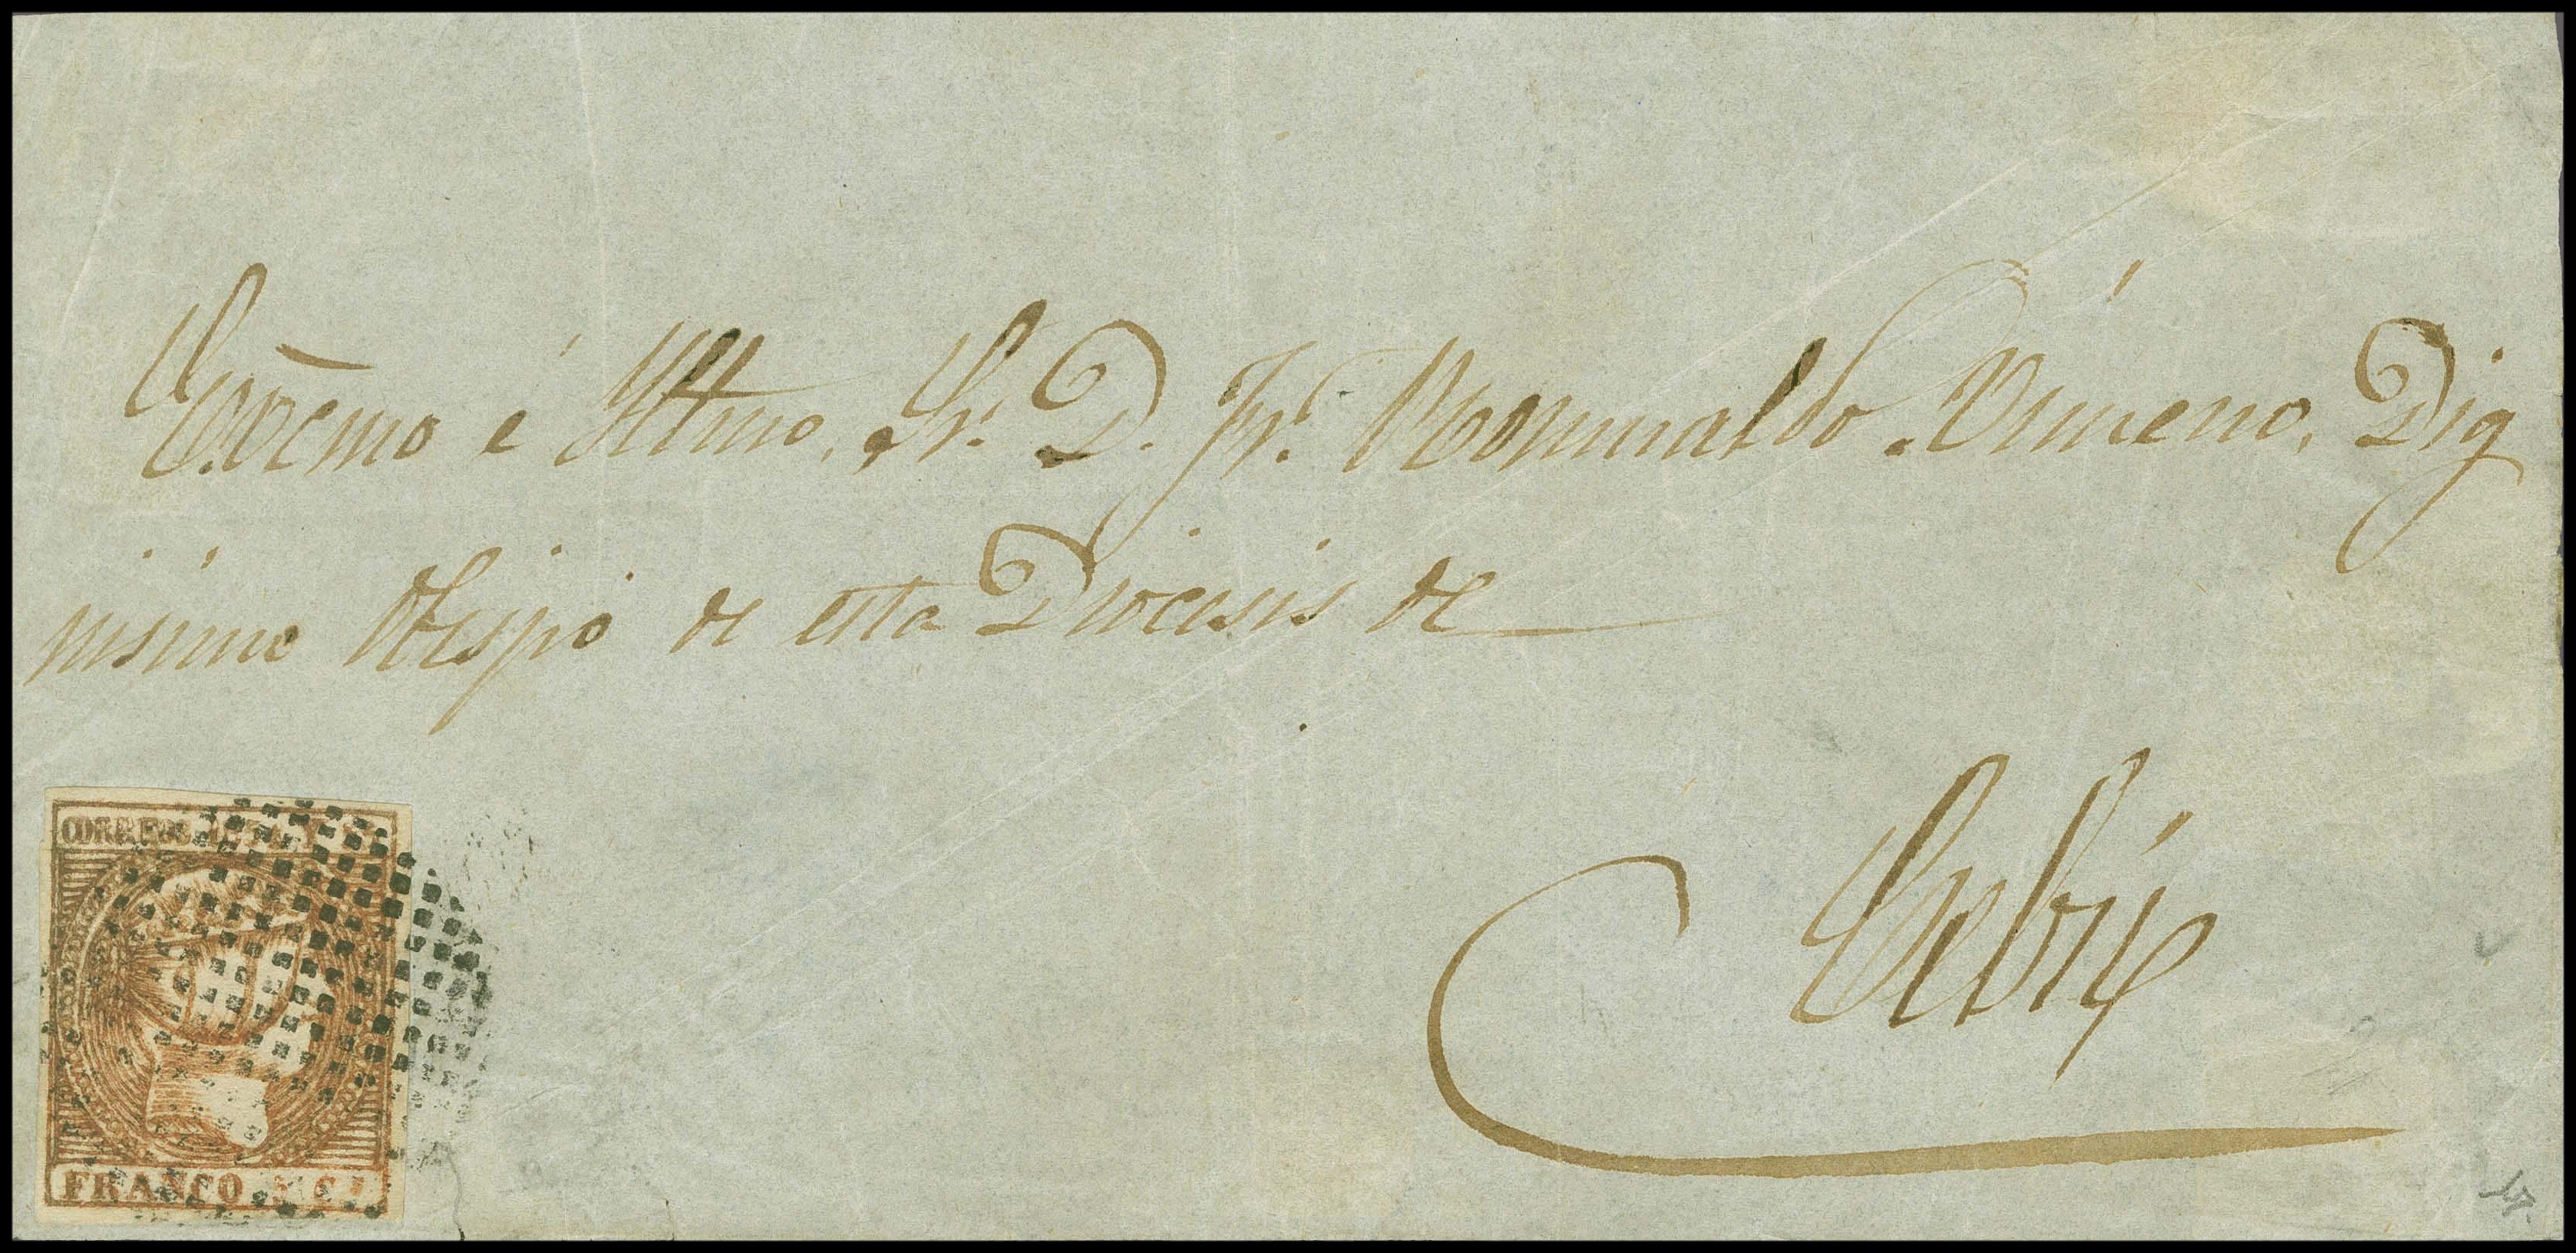 Excmo é Illmo. Sr. D. Fr. Romualdo Ximeno, Dig
nisimo Obispo de esta Diocesis de
Cebú
CORREOS
FRANCO